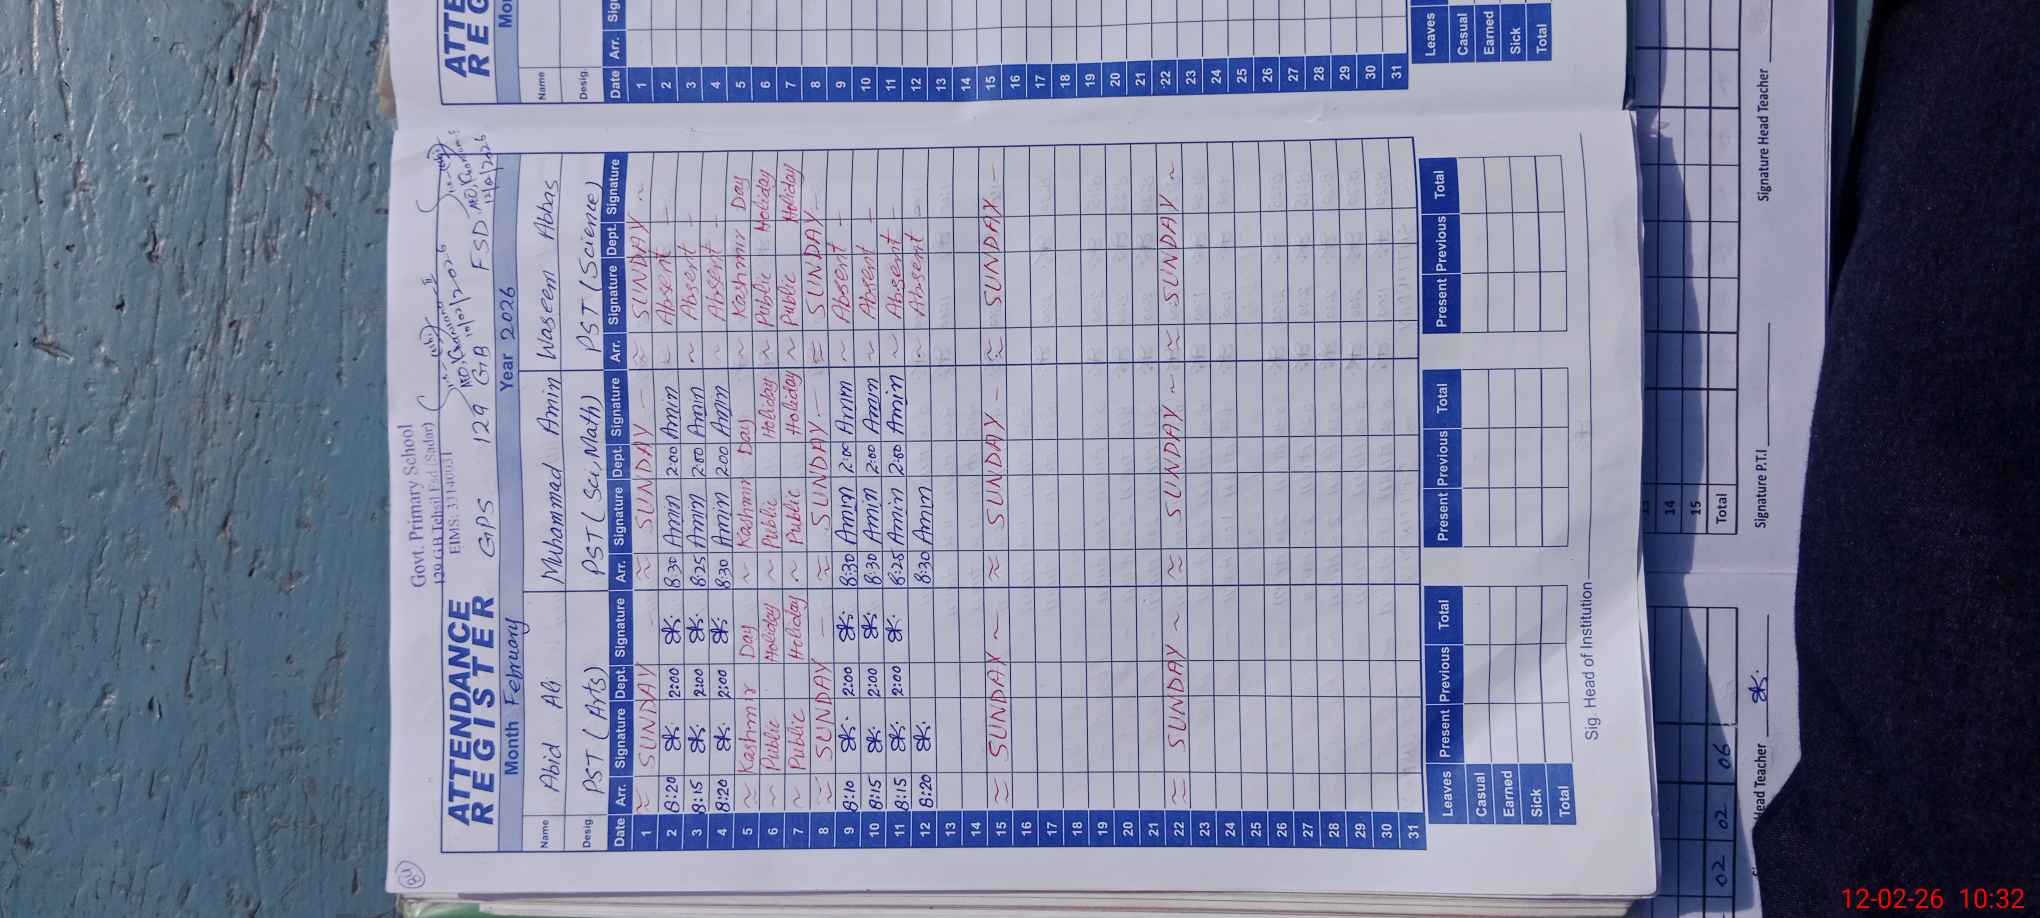 Govt. Primary School
129 GB Tehsil Fsd (Sadar)
EIMS: 33140031
ATTENDANCE REGISTER
GPS 129 GB FSD
10/02/2026
12/02/2026
Month February Year 2026
Name Abid Ali Muhammad Amin Waseem Abbas
Desig PST (Arts) PST (Sci, Math) PST (Science)
Date Arr. Signature Dept. Signature Arr. Signature Dept. Signature Arr. Signature Dept. Signature
1 SUNDAY SUNDAY SUNDAY
2 8:20 2:00 8:30 Amin 2:00 Amin Absent
3 8:15 2:00 8:25 Amin 2:00 Amin Absent
4 8:20 2:00 8:30 Amin 2:00 Amin Absent
5 Kashmir Day Kashmir Day Kashmir Day
6 Public Holiday Public Holiday Public Holiday
7 Public Holiday Public Holiday Public Holiday
8 SUNDAY SUNDAY SUNDAY
9 8:10 2:00 8:30 Amin 2:00 Amin Absent
10 8:15 2:00 8:30 Amin 2:00 Amin Absent
11 8:15 2:00 8:25 Amin 2:00 Amin Absent
12 8:20 8:30 Amin Absent
13
14
15 SUNDAY SUNDAY SUNDAY
16
17
18
19
20
21
22 SUNDAY SUNDAY SUNDAY
23
24
25
26
27
28
29
30
31
Leaves Present Previous Total Present Previous Total Present Previous Total
Casual
Earned
Sick
Total
Sig. Head of Institution
Name
Desig.
Date Arr.
1
2
3
4
5
6
7
8
9
10
11
12
13
14
15
16
17
18
19
20
21
22
23
24
25
26
27
28
29
30
31
Leaves
Casual
Earned
Sick
Total
14
15
Total
02 02 06
Head Teacher
Signature P.T.I
Signature Head Teacher
12-02-26 10:32